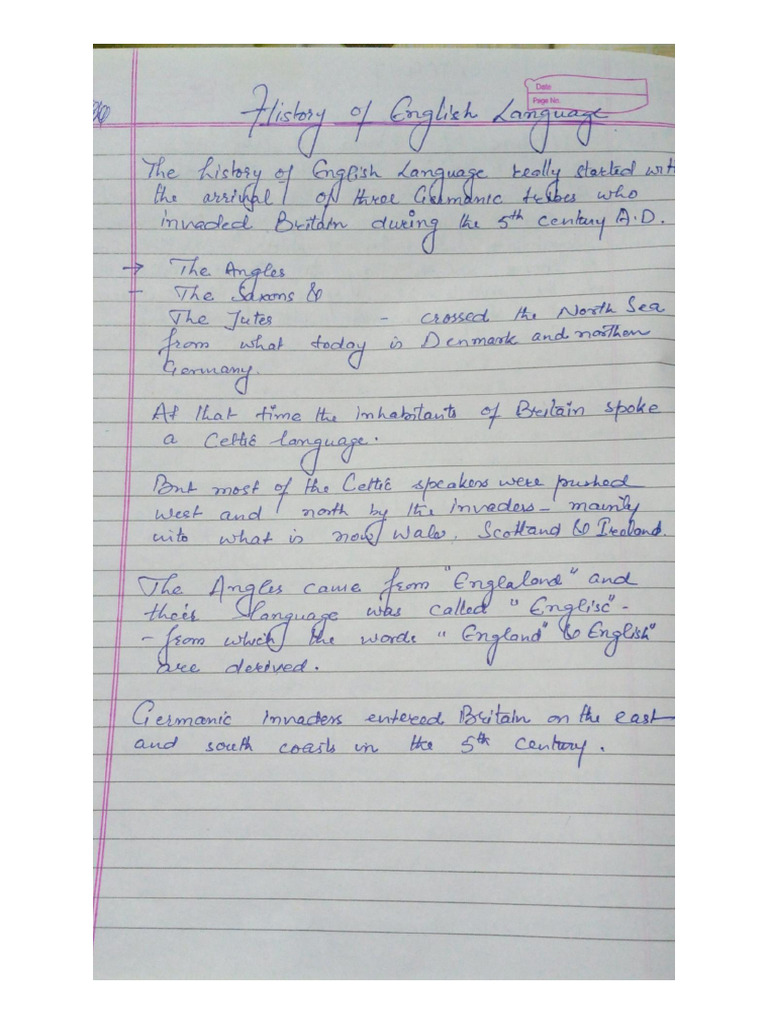 Date
Page No.
History of English Language
The history of English Language really started with
the arrival of three Germanic tribes who
invaded Britain during the 5th century A.D.
→ The Angles
- The Saxons &
The Jutes - crossed the North Sea
from what today is Denmark and northen
Germany.
At that time the inhabitants of Britain spoke
a Celtic language.
But most of the Celtic speakers were pushed
west and north by the invaders - mainly
into what is now Wales, Scotland & Ireland.
The Angles came from "Englaland" and
their language was called "Englisc" -
- from which the words "England" & English"
are derived.
Germanic invaders entered Britain on the east
and south coasts in the 5th century.